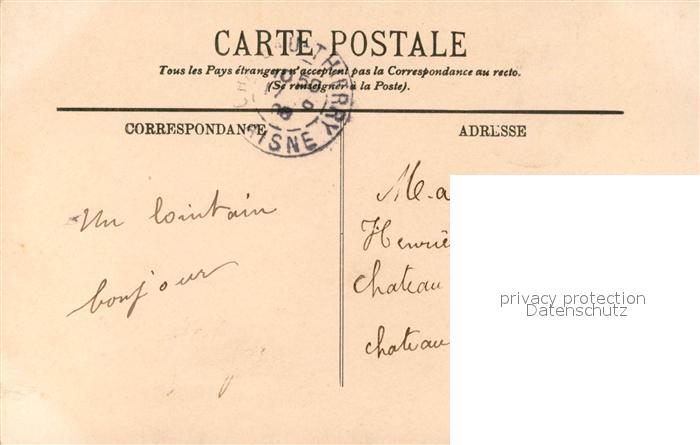 CARTE POSTALE
Tous les Pays étrangers n'acceptent pas la Correspondance au recto.
(Se renseigner à la Poste).
CHATEAU-THIERRY
AISNE
CORRESPONDANCE
ADRESSE
Un lointain
bonjour
M-a
Henrie
chateau
chateau
privacy protection
Datenschutz